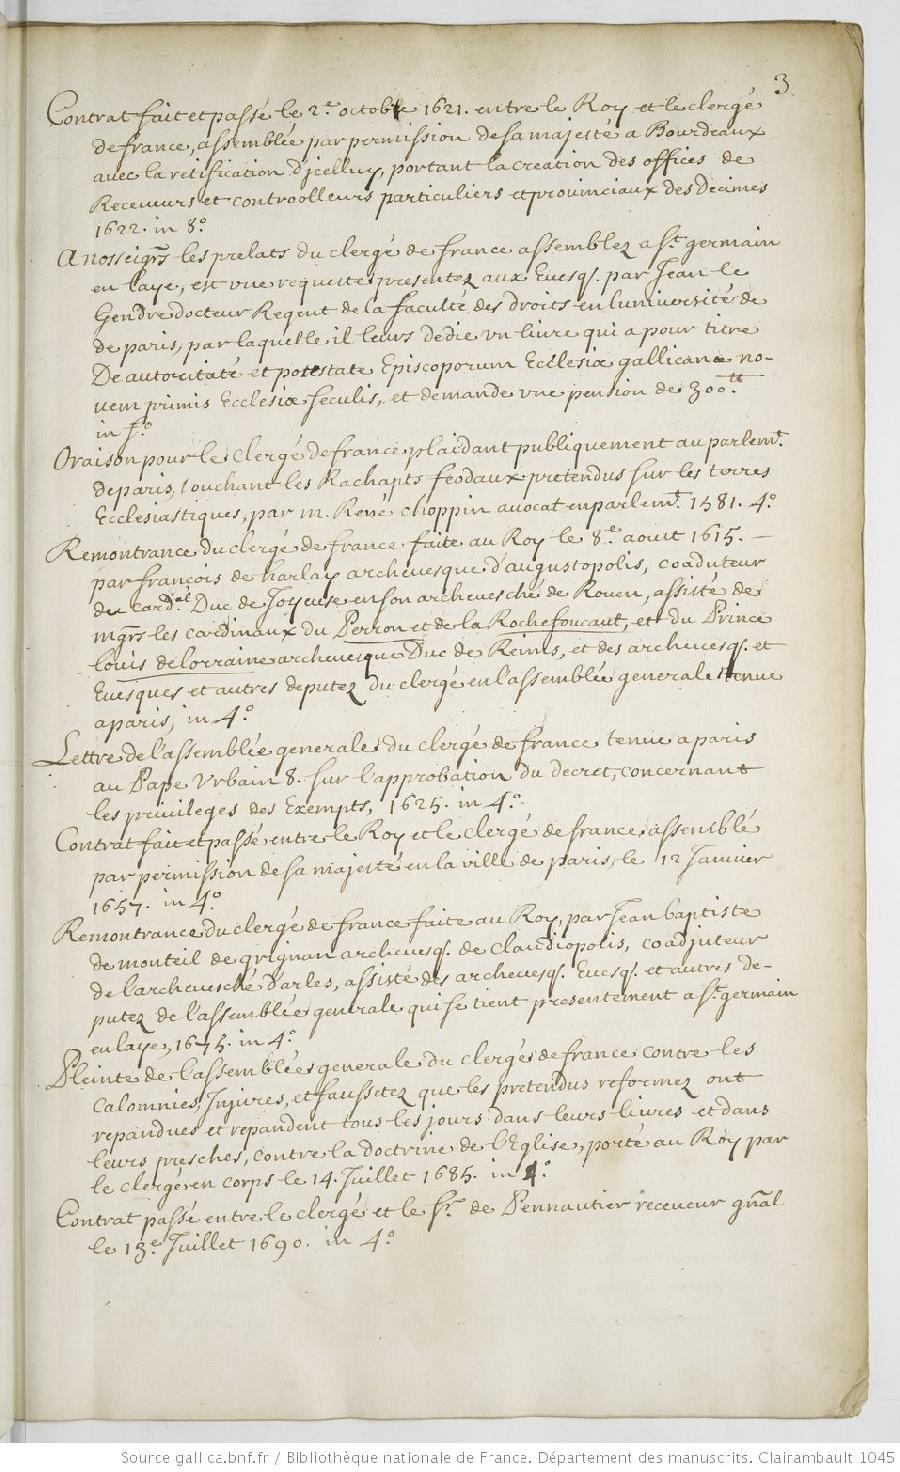 3
Contrat fait et passé le 2.e octobre 1621. entre le Roy et le clergé
de france, assemblée par permission de sa majesté a Bourdeaux
avec la retification D'jcelluy, portant la creation des offices de
Receveurs et controolleurs particuliers et provinciaux des Decimes
1622. in 8.o
A nosseigrs les prelats du clergé de france assemblez a St. germain
en laye, est vne requeste presentez aux Evesq. par Jean le
Gendre docteur Regent de la faculté des droits en luniversité de
de paris, par laquelle il leurs dedie vn livre qui a pour titre
De autoritaté et potestate Episcoporum Ecclesiæ gallicanæ no-
vem primis Ecclesiæ seculis, et demande vne pension de 300.tt
in f.o
Oraison pour le Clergé de france plaidant publiquement au parlemt.
de paris, touchant les Rachapts feodaux pretendus sur les terres
Ecclesiastiques, par m. René choppin avocat en parlemt. 1581. 4.o
Remontrance du clergé de france faite au Roy le 8.e aout 1615. —
par françois de harlay archevesque d'augustopolis, coaduteur
du card.al Duc de Joyeuse en son archevesché de Rouen, assisté de
mgrs les cardinaux du Perron et de la Rochefoucaut, et du Prince
louis de lorraine archevesque Duc de Reims, et des archevesq. et
Evesques et autres deputez du clergé en l'assemblée generale tenue
a paris, in 4.o
Lettre de l'assemblée generale du clergé de france tenue a paris
au Pape Vrbain 8. sur l'approbation du decret, concernant
les privileges des Exempts, 1625. in 4.o
Contrat fait et passé entre le Roy et le clergé de france assemblé
par permission de sa majesté en la ville de paris, le 12 Janvier
1657. in 4.o
Remontrance du clergé de france faite au Roy, par Jean baptiste
de monteil de grignan archevesq. de claudiopolis, coadjuteur
de l'archevesché D'arles, assisté des archevesq. Evesq. et autres de-
putez de l'assemblée generale qui se tient presentement a St. germain
en laye, 1675. in 4.o
Pleinte de l'assemblée generale du clergé de france contre les
calomnies, Injures, et faussetez que les pretendus reformez ont
repandues et repandent tous les jours dans leurs livres et dans
leurs presches, contre la doctrine de l'Eglise, porté au Roy par
le clergé en corps le 14. Juillet 1685. in 4.o
Contrat passé entre le clergé et le Sr. de Pennautier receveur gnâl
le 13.e Juillet 1690. in 4.o
Source gallica.bnf.fr / Bibliothèque nationale de France. Département des manuscrits. Clairambault 1045